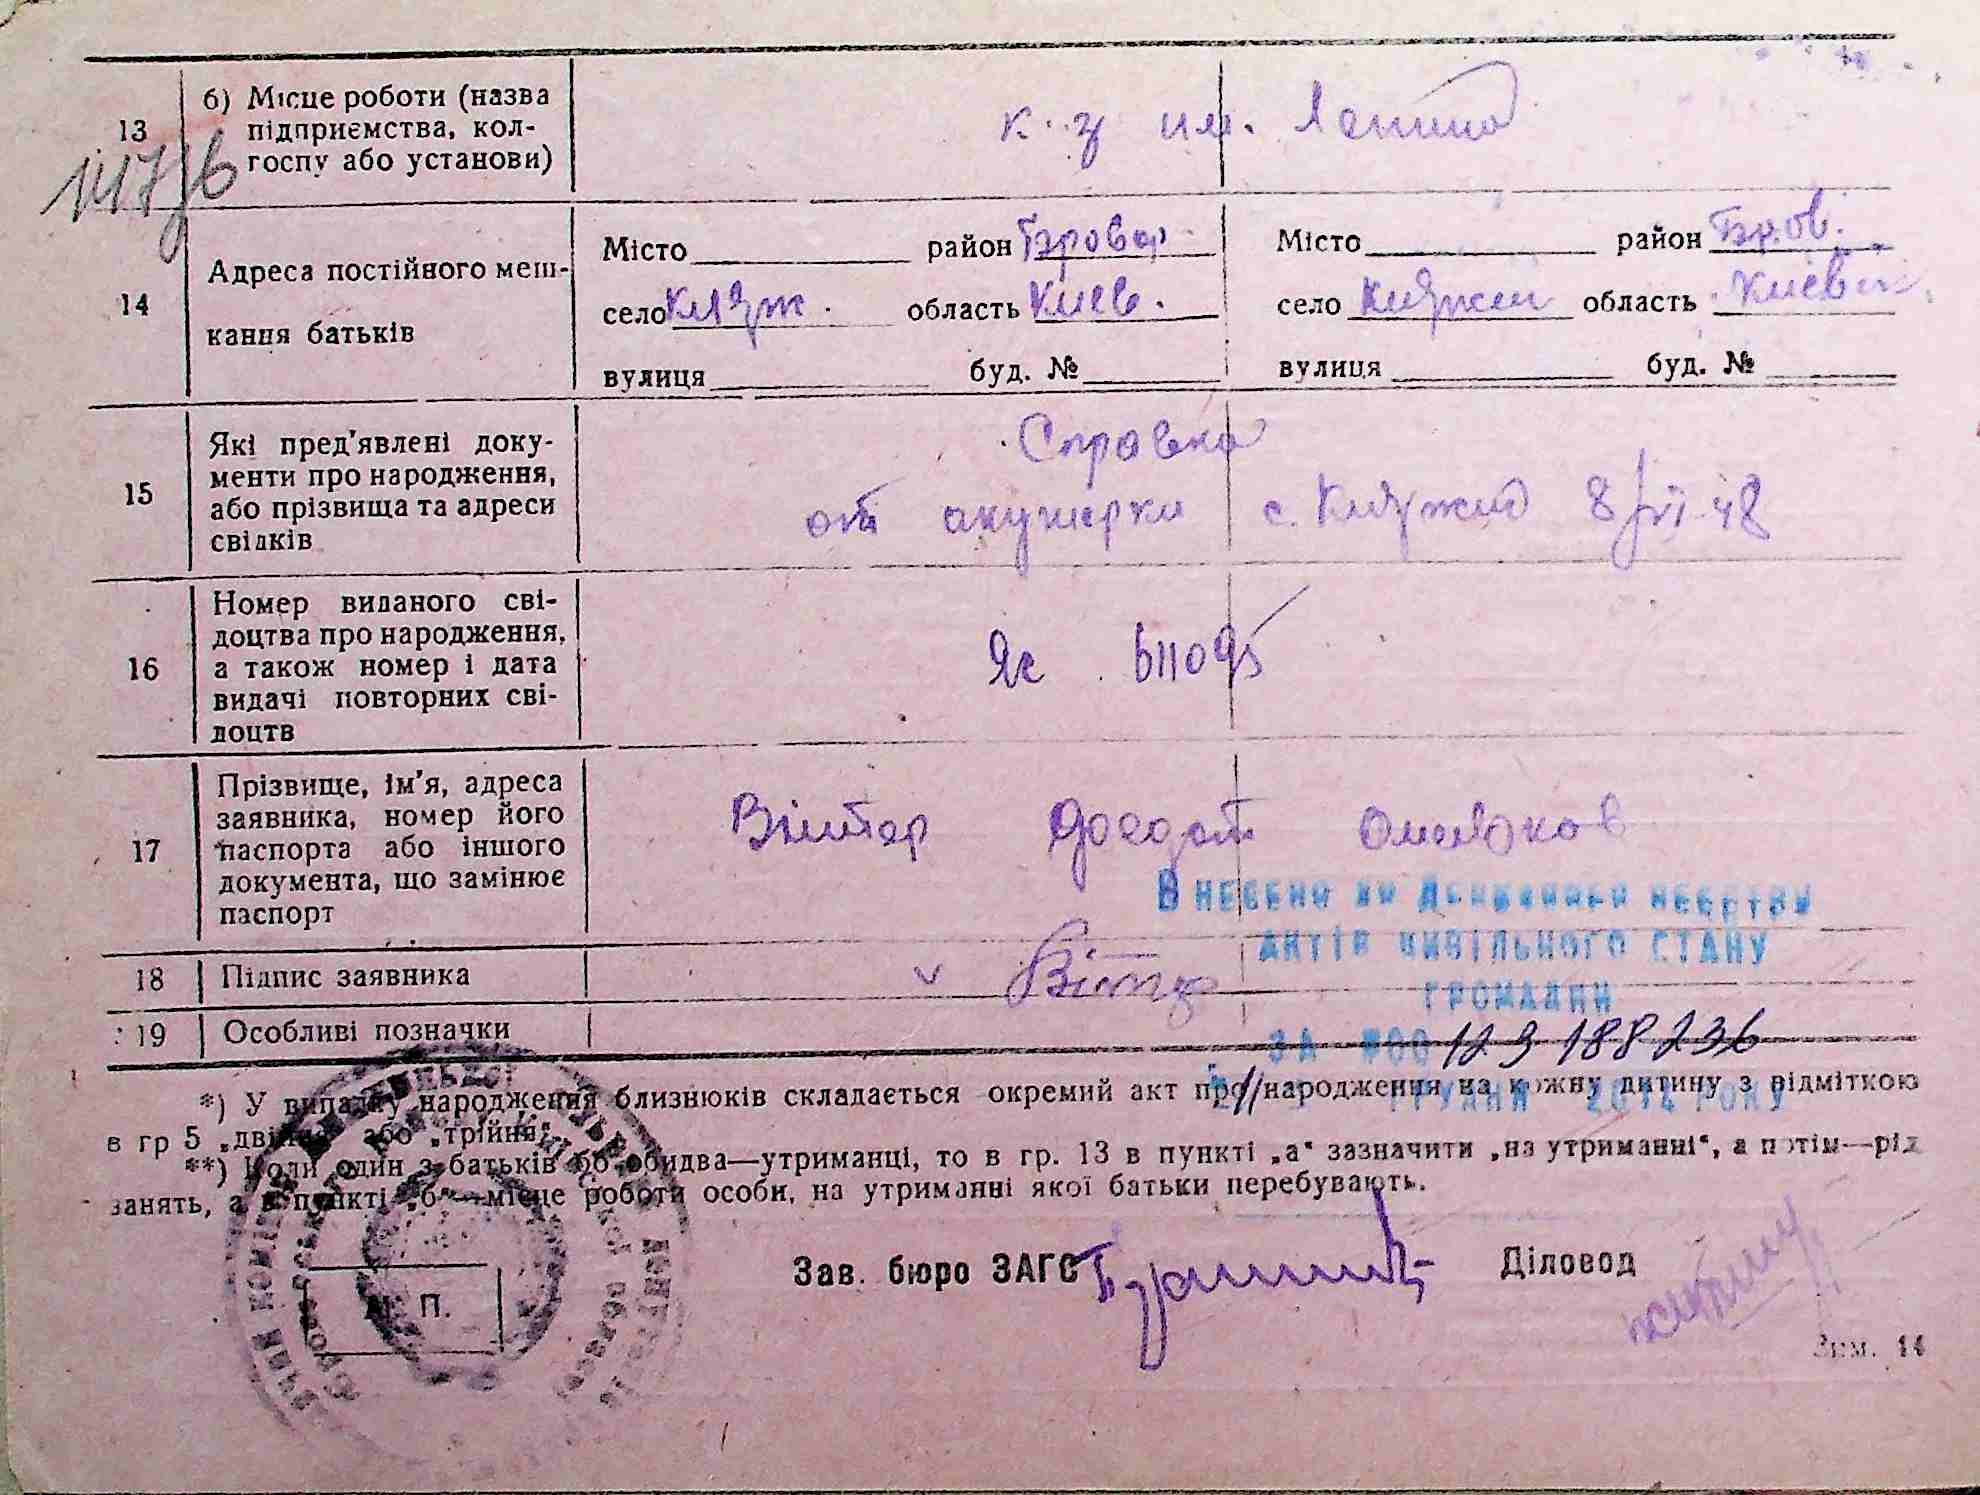 13
б) Місце роботи (назва
підприємства, кол-
госпу або установи)
к-з им. Ленина
14
Адреса постійного меш-
кання батьків
Місто район Бровар.
село Княж. область Киев.
вулиця буд. №
Місто район Бров.
село Княжичи область
вулиця буд. №
15
Які пред'явлені доку-
менти про народження,
або прізвища та адреси
свідків
Справка
от акушерки с. Княжич 8/VI 48
16
Номер виданого сві-
доцтва про народження,
а також номер і дата
видачі повторних сві-
доцтв
Яс 611095
17
Прізвище, ім'я, адреса
заявника, номер його
паспорта або іншого
документа, що замінює
паспорт
18
Підпис заявника
19
Особливі позначки
Внесено до Державного реєстру
актів цивільного стану
громадян
за №00 123 188 236
грудня 2014 року
*) У випадку народження близнюків складається окремий акт про народження на кожну дитину з відміткою
в гр 5 „двійня" або „трійня".
**) Коли один з батьків бо обидва—утриманці, то в гр. 13 в пункті „а" зазначити „на утриманні", а потім—рід
занять, а в пункті „б"—місце роботи особи, на утриманні якої батьки перебувають.
Зав. бюро ЗАГС Діловод
М. П.
Зам. 14